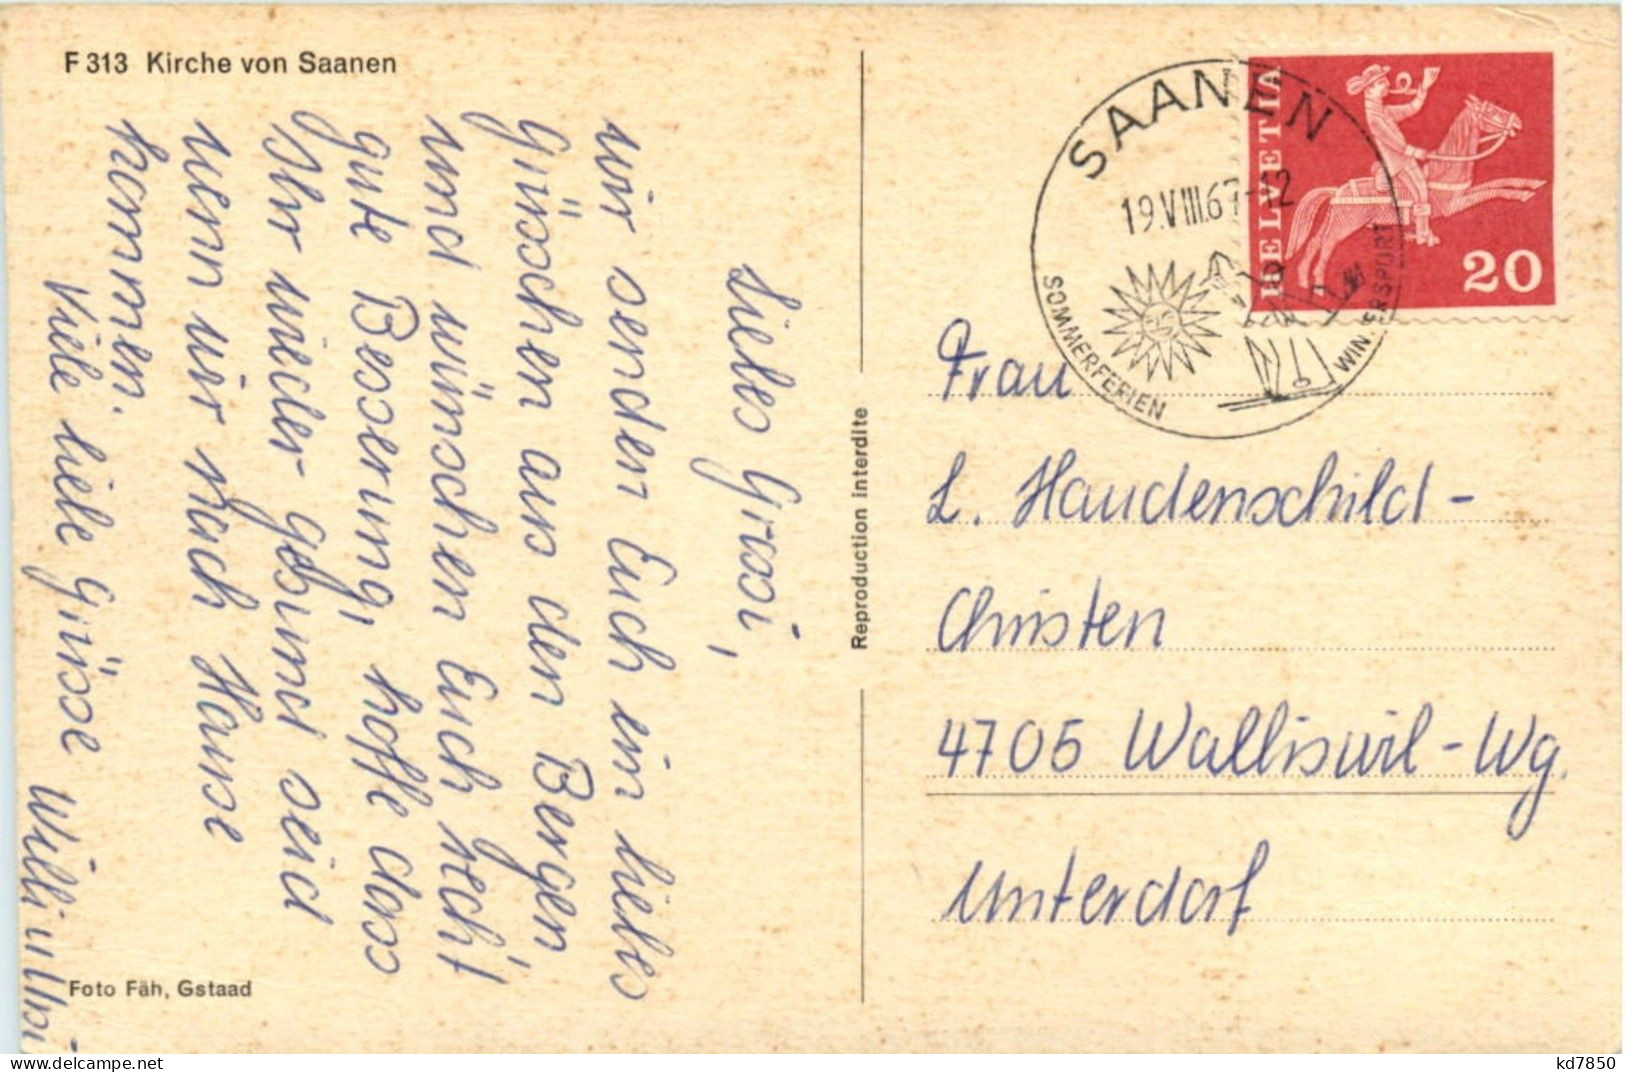 F 313 Kirche von Saanen
Liebes Grosi,
wir senden Euch ein liebes
Grüsschen aus den Bergen,
und wünschen Euch recht
gute Besserung, hoffe dass
Ihr wieder gesund seid
wenn wir nach Hause
kommen.
Viele liebe Grüsse Willi u Ubi
Foto Fäh, Gstaad
Reproduction interdite
SAANEN
19.VIII.67-12
SOMMERFERIEN
WINTERSPORT
HELVETIA
20
Frau
L. Haudenschild-
Christen
4705 Walliswil-Wg.
Unterdorf
kd7850
delcampe.net